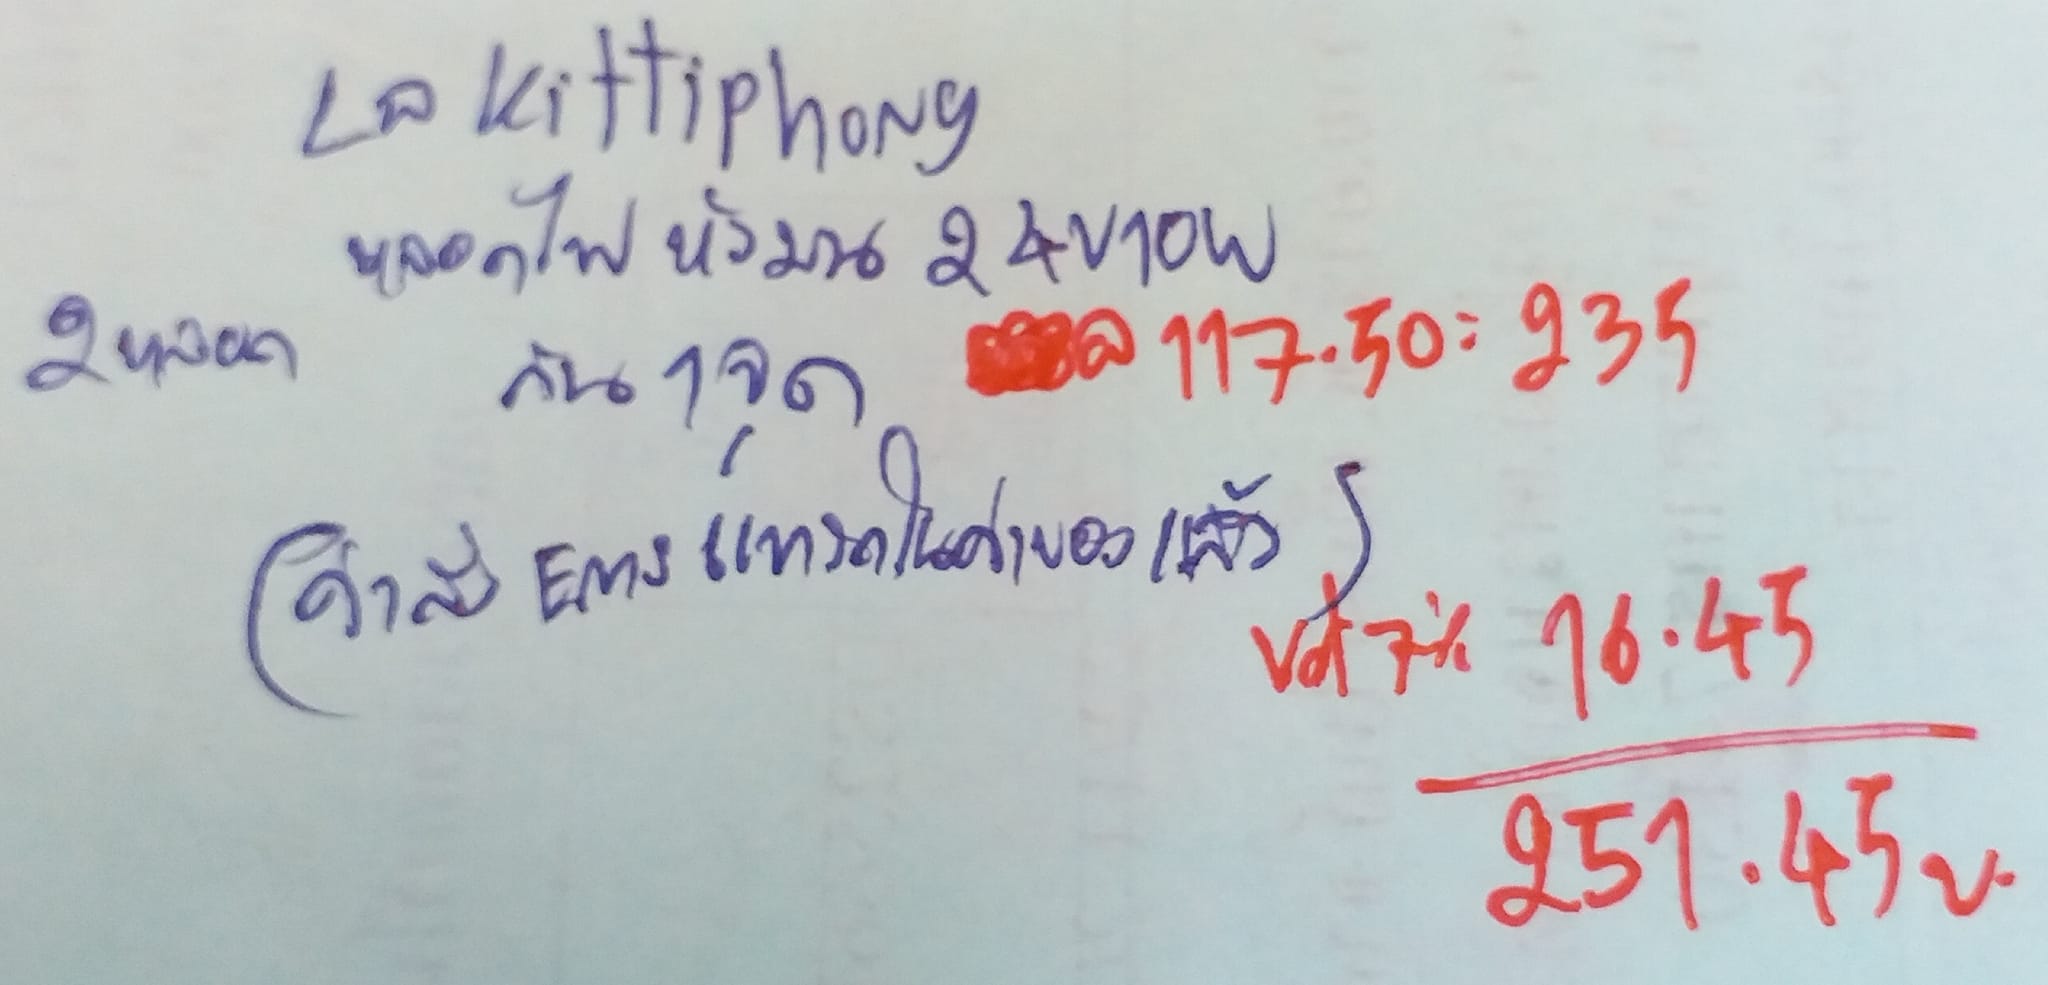 La Kittiphong
หลอดไฟ หัวมน 24V10W
2 หลอด ก้น 1 จุด @ 117.50 = 235
(ค่าส่ง Ems แทรกในค่าของแล้ว)
Vat 7% 16.45
251.45 บ.